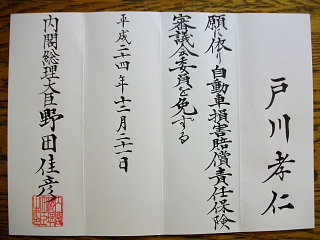 戸川孝仁
願に依り自動車損害賠償責任保険
審議会委員を免ずる
平成二十四年十二月二十一日
内閣総理大臣 野田佳彦